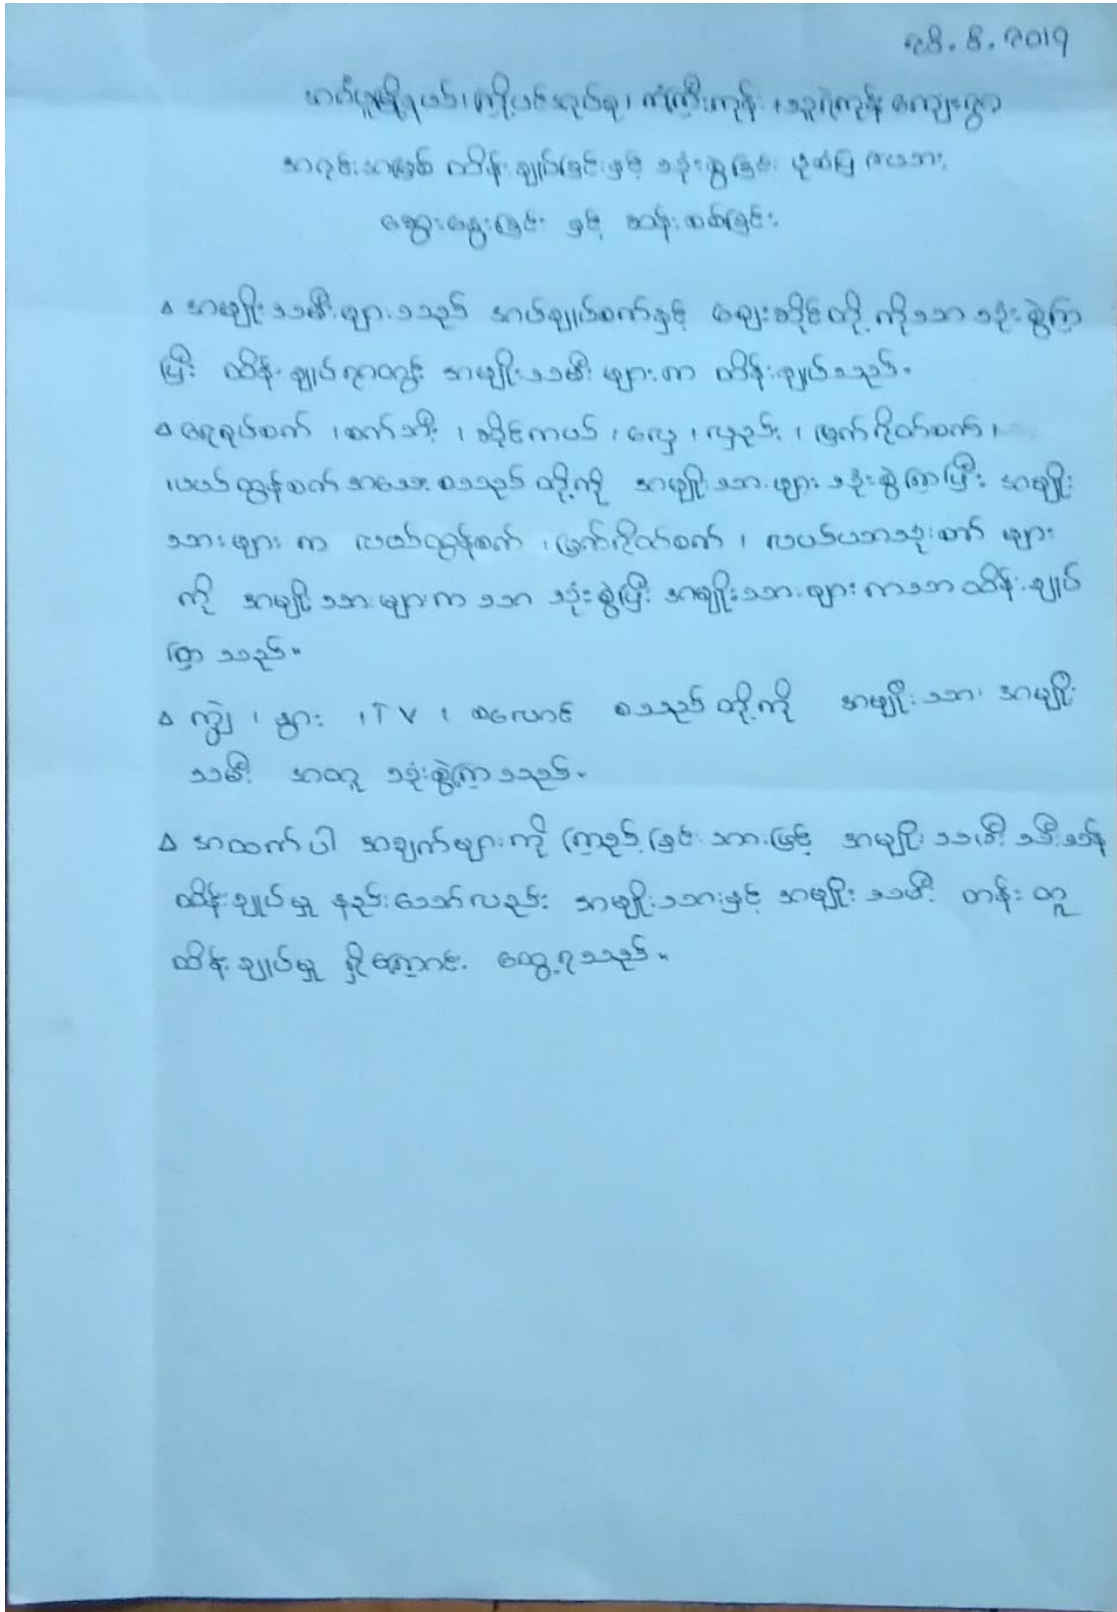 ၂၆.၆.၂၀၁၇
ကြို့ပင်အုပ်စု၊ ကံကြီးကုန်း၊ ကျေးရွာ
အရင်းအမြစ် ထိန်းချုပ်ခြင်းနှင့် သုံးစွဲခြင်း ပုံစံပြ ဇယား
ဆွေးနွေးခြင်း နှင့် ဆန်းစစ်ခြင်း
∆ အမျိုးသမီးများသည် အပ်ချုပ်စက်နှင့် ဈေးဆိုင်တို့ကိုသာ သုံးစွဲကြ
ပြီး ထိန်းချုပ်ရာတွင် အမျိုးသမီးများက ထိန်းချုပ်သည်။
∆ ရေစုပ်စက်၊ စက်ဘီး၊ ဆိုင်ကယ်၊ လှေ၊ လှည်း၊ မြက်ရိတ်စက်၊
လယ်ထွန်စက်အသေး စသည်တို့ကို အမျိုးသားများ သုံးစွဲကြပြီး အမျိုး
သားများ က လယ်ထွန်စက်၊ မြက်ရိတ်စက်၊ လယ်ယာသုံးစက် များ
ကို အမျိုးသားများကသာ သုံးစွဲပြီး အမျိုးသားများကသာ ထိန်းချုပ်
ကြ သည်။
∆ ကျွဲ၊ နွား၊ TV၊ စလောင် စသည်တို့ကို အမျိုးသား အမျိုး
သမီး အတူ သုံးစွဲကြသည်။
∆ အထက်ပါ အချက်များကို ကြည့်ခြင်းအားဖြင့် အမျိုးသမီး သီးသန့်
ထိန်းချုပ်မှု နည်းသော်လည်း အမျိုးသားနှင့် အမျိုးသမီး တန်းတူ
ထိန်းချုပ်မှု ရှိကြောင်း တွေ့ရသည်။